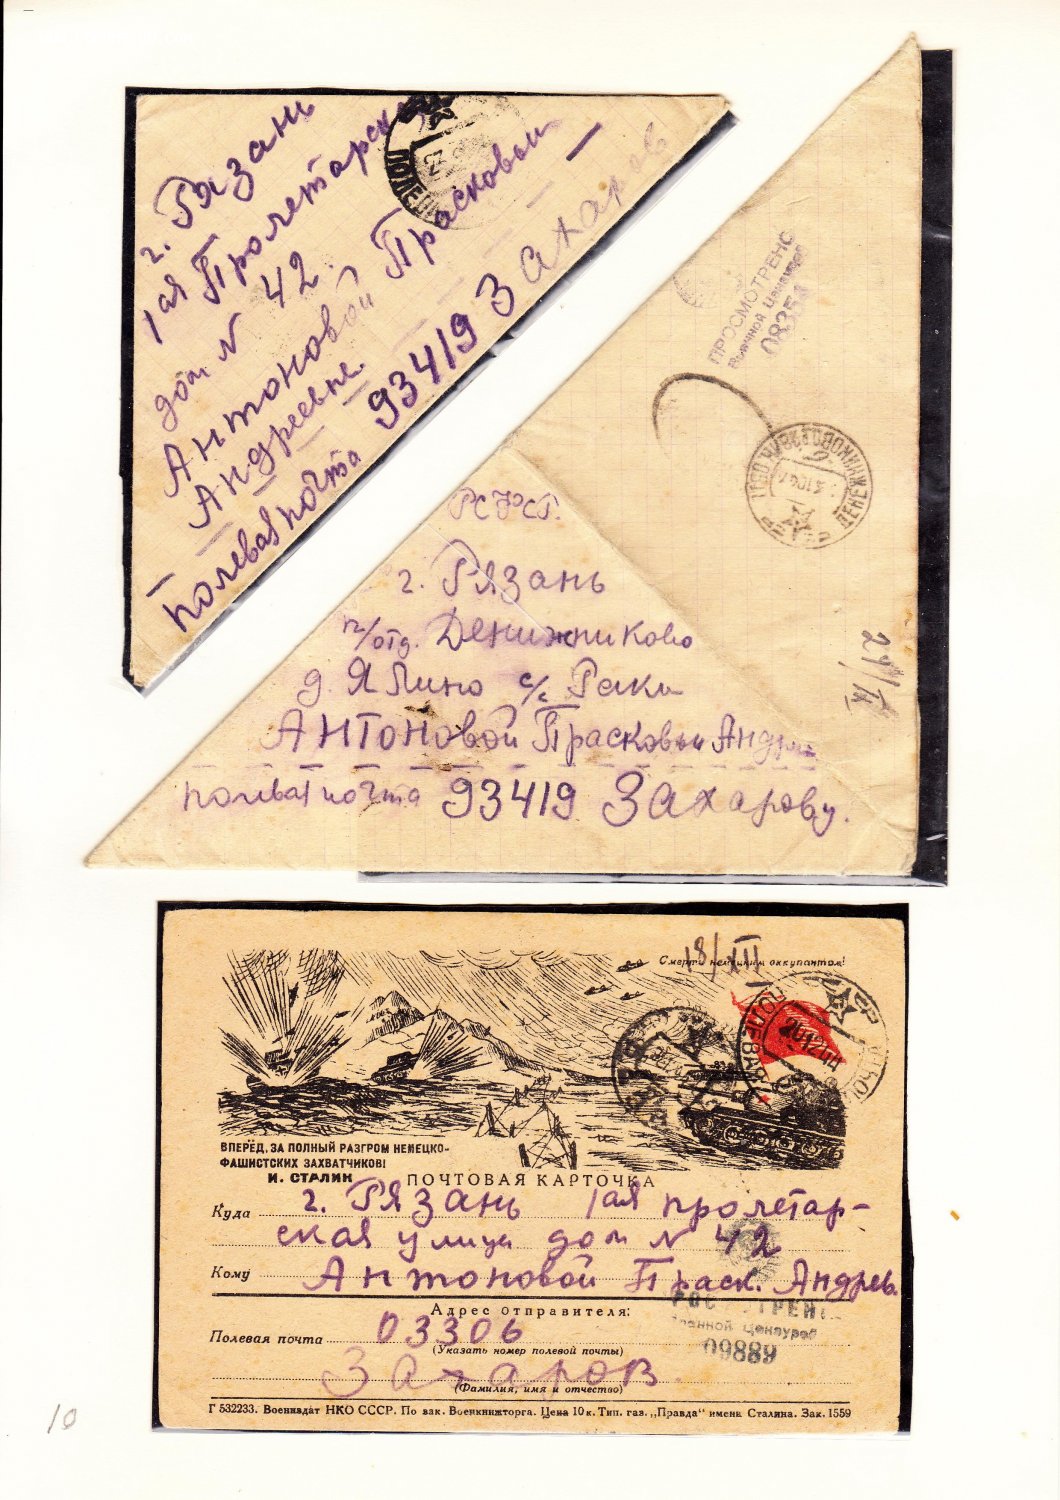 г. Рязань
1ая Пролетарск
дом N 42.
Антоновой Прасковьи
Андреевне.
полевая почта 93419 Захаров
ПОЛЕВ
ПРОСМОТРЕНО
Военной Цензурой
08354
РСФСР.
г. Рязань
п/отд. Денижниково
д. Ялино с/с Реки
Антоновой Прасковьи Андре
полевая почта 93419 Захарову.
29/IX
18/XII
Смерть немецким оккупантам!
ПОЛЕВАЯ
20.12.44
ВПЕРЁД, ЗА ПОЛНЫЙ РАЗГРОМ НЕМЕЦКО-
ФАШИСТСКИХ ЗАХВАТЧИКОВ!
И. СТАЛИН
ПОЧТОВАЯ КАРТОЧКА
Куда г. Рязань 1ая пролетар-
ская улица дом N 42
Кому Антоновой Праск. Андреев.
Адрес отправителя:
Полевая почта 03306
(Указать номер полевой почты)
Захаров.
(Фамилия, имя и отчество)
РОСМОТРЕН
военной Цензурой
09889
Г 532233. Воениздат НКО СССР. По зак. Военкнижторга. Цена 10 к. Тип. газ. „Правда“ имени Сталина. Зак. 1559
10